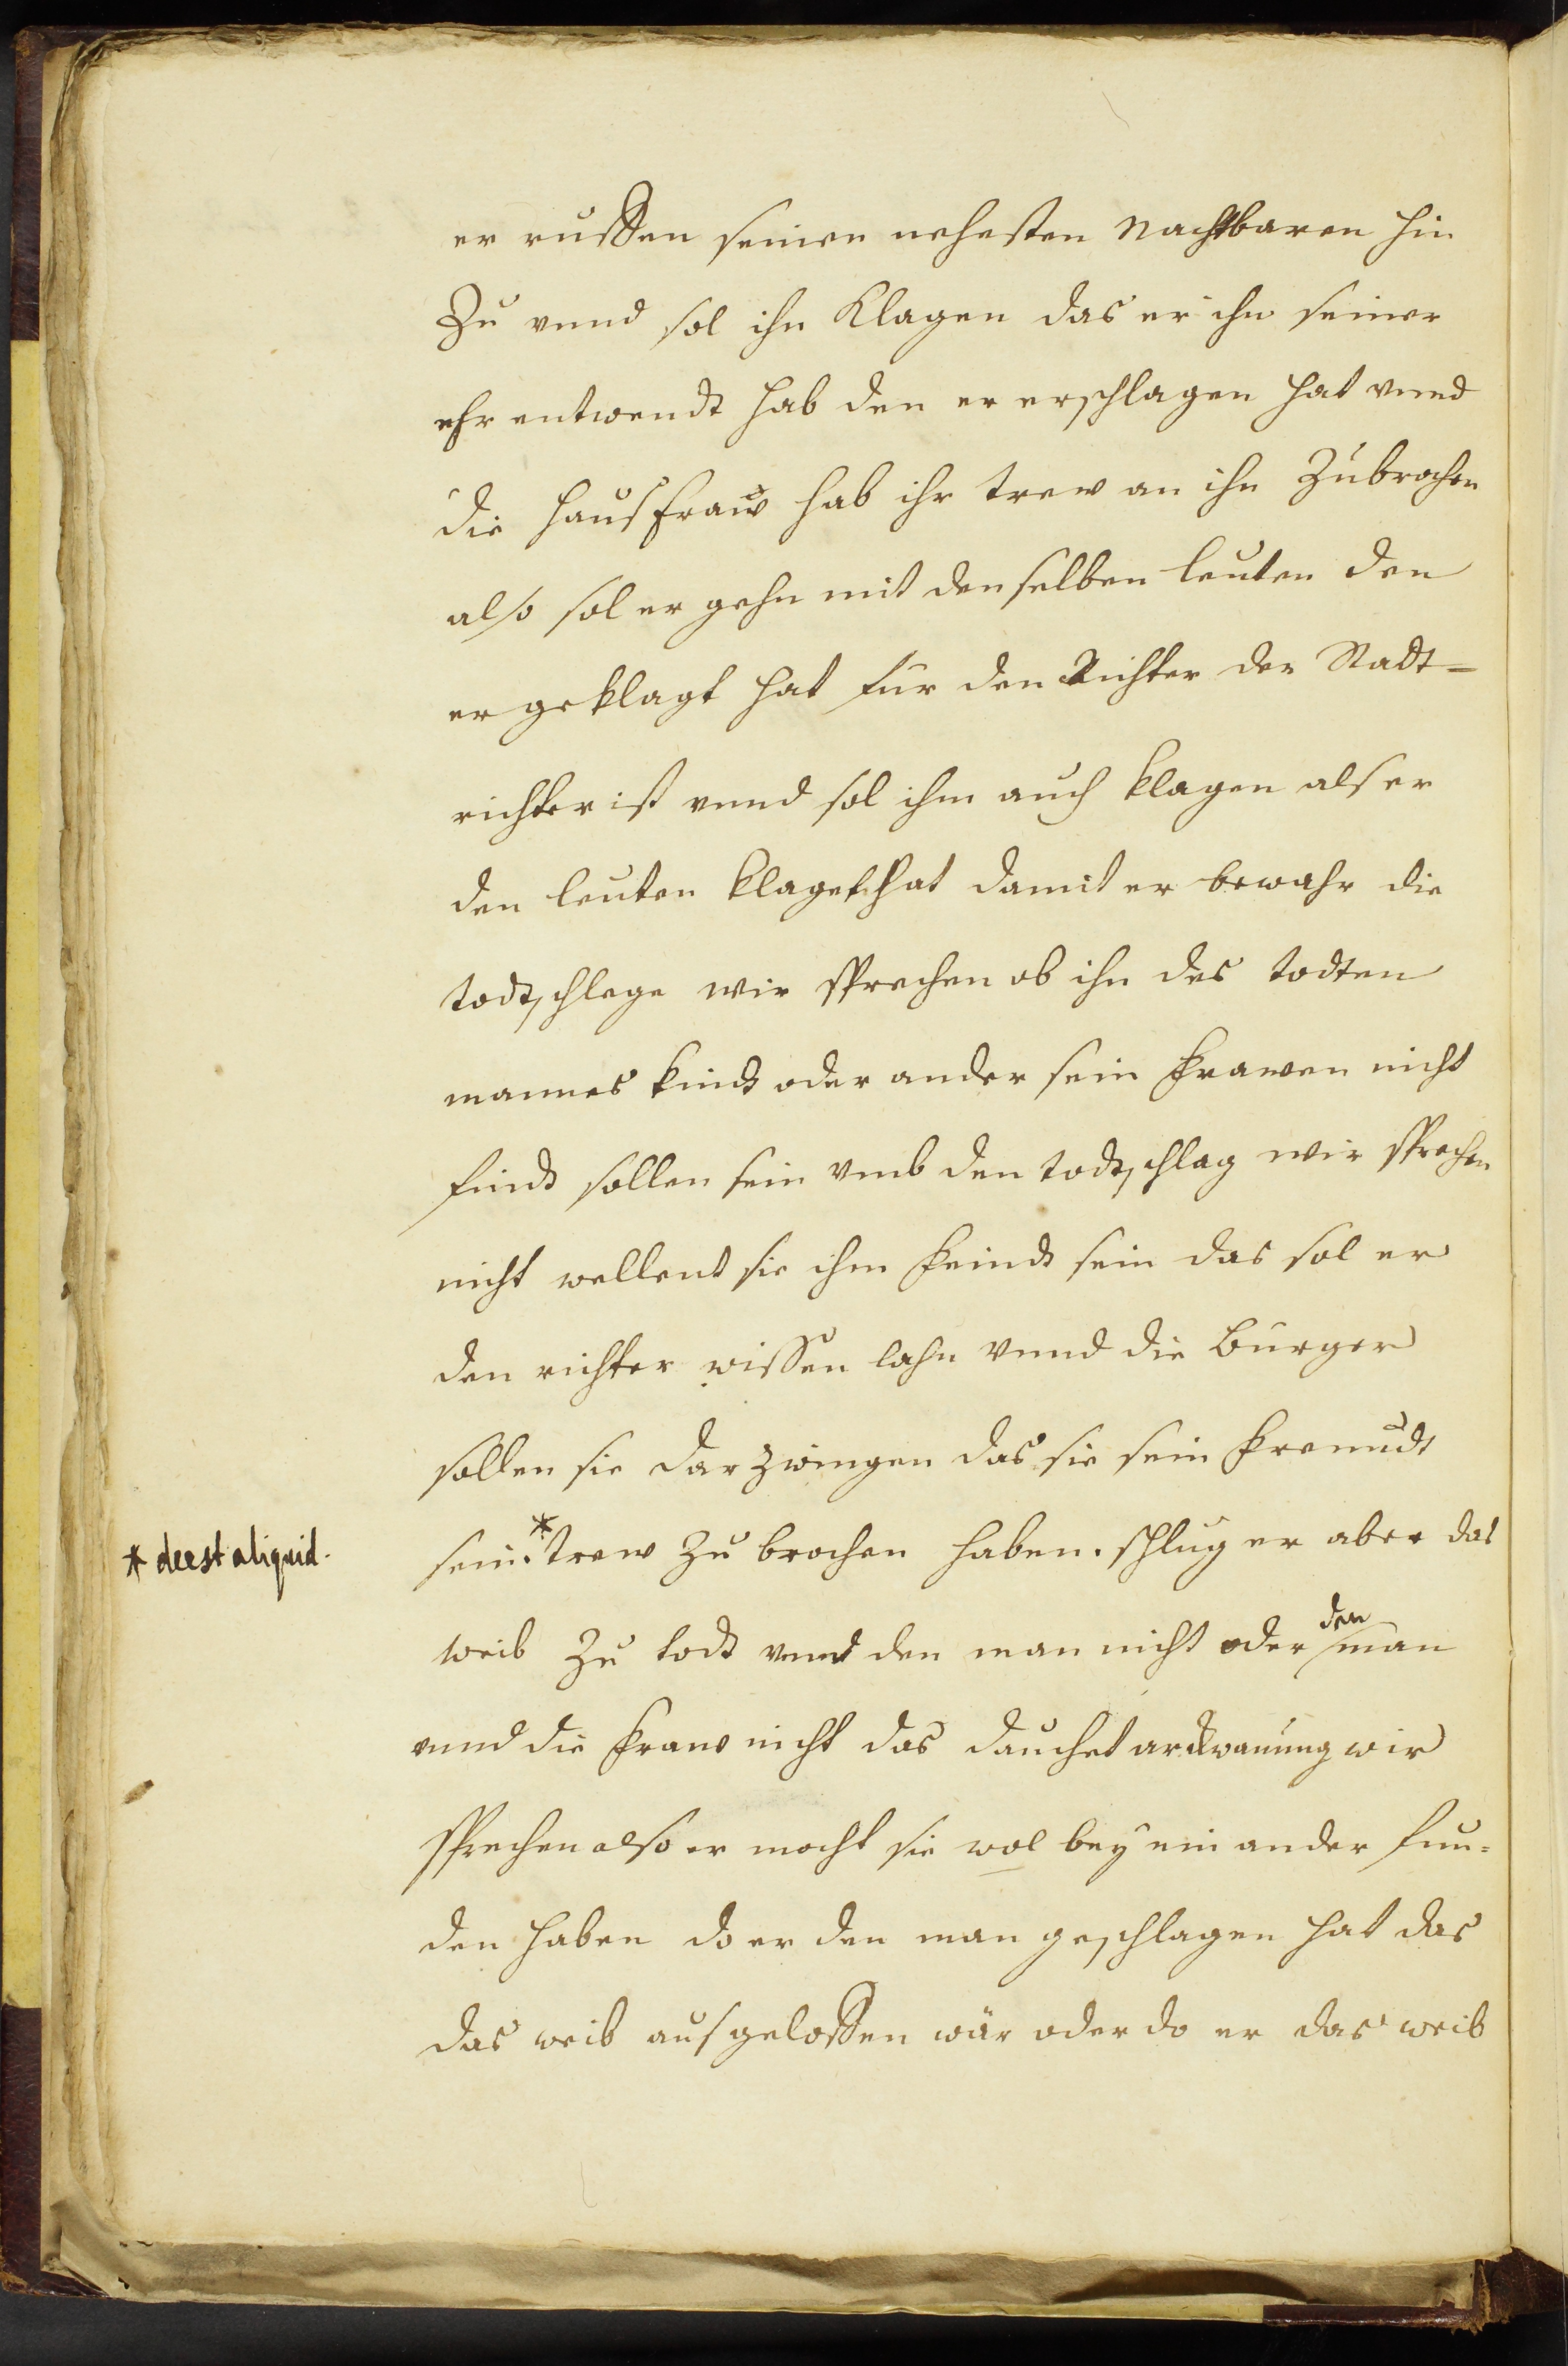 er ruffen seinen nehesten Nachtbaren hin
Zu vnnd sol ihn Klagen das er ihn seiner
ehr entwendt hab den er erschlagen hat vnnd
die hausfraw hab ihr trew an ihn Zubrochen
also sol er gehn mit denselben leuten den
er geklagt hat fur den Richter der Stadt=
richter ist vnnd sol ihm auch klagen als er
den leuten klaget hat damit er bewahr die
todtschlege wir sprechen ob ihn des todten
mannes kindt oder ander sein frawen nicht
findt sollen sein vmb den todtschlag wir sprechen
nicht wellent sie ihm feindt sein das sol er
den richter wissen lahn vnnd die Burger
sollen sie dar zwingen das sie sein freundt
sein.* trew Zu brochen haben. schlug er aber das
* deest aliquid.
weib Zu todt vnnd den man nicht oder den man
vnnd die fraw nicht das dauchet ardwanung wir
sprechen also er mocht sie wol bey ein ander fun=
den haben do er den man geschlagen hat das
das weib ausgeloffen wär oder do er das weib